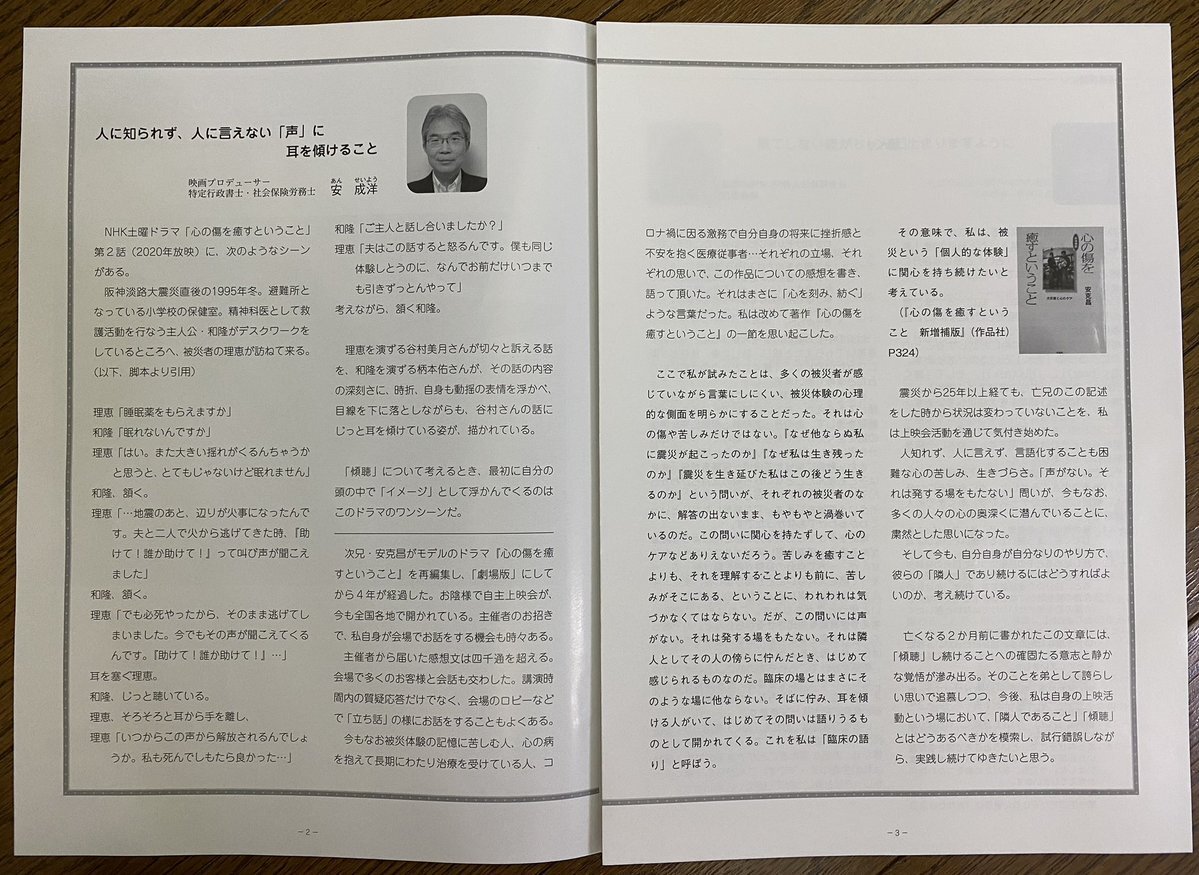 人に知られず、人に言えない「声」に
耳を傾けること
映画プロデューサー
特定行政書士・社会保険労務士
あん せいよう
安 成洋
NHK土曜ドラマ「心の傷を癒すということ」
第2話（2020年放映）に、次のようなシーン
がある。
阪神淡路大震災直後の1995年冬。避難所と
なっている小学校の保健室。精神科医として救
護活動を行なう主人公・和隆がデスクワークを
しているところへ、被災者の理恵が訪ねて来る。
（以下、脚本より引用）
理恵「睡眠薬をもらえますか」
和隆「眠れないんですか」
理恵「はい。また大きい揺れがくるんちゃうか
と思うと、とてもじゃないけど眠れません」
和隆、頷く。
理恵「…地震のあと、辺りが火事になったんで
す。夫と二人で火から逃げてきた時、『助
けて！誰か助けて！』って叫び声が聞こえ
ました」
和隆、頷く。
理恵「でも必死やったから、そのまま逃げてし
まいました。今でもその声が聞こえてくる
んです。『助けて！誰か助けて！』…」
耳を塞ぐ理恵。
和隆、じっと聴いている。
理恵、そろそろと耳から手を離し、
理恵「いつからこの声から解放されるんでしょ
うか。私も死んでしもたら良かった…」
和隆「ご主人と話し合いましたか？」
理恵「夫はこの話すると怒るんです。僕も同じ
体験しとうのに、なんでお前だけいつまで
も引きずっとんやって」
考えながら、頷く和隆。
理恵を演ずる谷村美月さんが切々と訴える話
を、和隆を演ずる柄本佑さんが、その話の内容
の深刻さに、時折、自身も動揺の表情を浮かべ、
目線を下に落としながらも、谷村さんの話に
じっと耳を傾けている姿が、描かれている。
「傾聴」について考えるとき、最初に自分の
頭の中で「イメージ」として浮かんでくるのは
このドラマのワンシーンだ。
次兄・安克昌がモデルのドラマ『心の傷を癒
すということ』を再編集し、「劇場版」にして
から4年が経過した。お陰様で自主上映会が、
今も全国各地で開かれている。主催者のお招き
で、私自身が会場でお話をする機会も時々ある。
主催者から届いた感想文は四千通を超える。
会場で多くのお客様と会話も交わした。講演時
間内の質疑応答だけでなく、会場のロビーなど
で「立ち話」の様にお話をすることもよくある。
今もなお被災体験の記憶に苦しむ人、心の病
を抱えて長期にわたり治療を受けている人、コ
－2－
ロナ禍に因る激務で自分自身の将来に挫折感と
不安を抱く医療従事者…それぞれの立場、それ
ぞれの思いで、この作品についての感想を書き、
語って頂いた。それはまさに「心を刻み、紡ぐ」
ような言葉だった。私は改めて著作『心の傷を
癒すということ』の一節を思い起こした。
ここで私が試みたことは、多くの被災者が感
じていながら言葉にしにくい、被災体験の心理
的な側面を明らかにすることだった。それは心
の傷や苦しみだけではない。『なぜ他ならぬ私
に震災が起こったのか』『なぜ私は生き残った
のか』『震災を生き延びた私はこの後どう生き
るのか』という問いが、それぞれの被災者のな
かに、解答の出ないまま、もやもやと渦巻いて
いるのだ。この問いに関心を持たずして、心の
ケアなどありえないだろう。苦しみを癒すこと
よりも、それを理解することよりも前に、苦し
みがそこにある、ということに、われわれは気
づかなくてはならない。だが、この問いには声
がない。それは発する場をもたない。それは隣
人としてその人の傍らに佇んだとき、はじめて
感じられるものなのだ。臨床の場とはまさにそ
のような場に他ならない。そばに佇み、耳を傾
ける人がいて、はじめてその問いは語りうるも
のとして開かれてくる。これを私は「臨床の語
り」と呼ぼう。
その意味で、私は、被
災という「個人的な体験」
に関心を持ち続けたいと
考えている。
（『心の傷を癒すという
こと 新増補版』（作品社）
P324）
心の傷を
癒すということ
安克昌
震災から25年以上経ても、亡兄のこの記述
をした時から状況は変わっていないことを、私
は上映会活動を通じて気付き始めた。
人知れず、人に言えず、言語化することも困
難な心の苦しみ、生きづらさ。「声がない。そ
れは発する場をもたない」問いが、今もなお、
多くの人々の心の奥深くに潜んでいることに、
粛然とした思いになった。
そして今も、自分自身が自分なりのやり方で、
彼らの「隣人」であり続けるにはどうすればよ
いのか、考え続けている。
亡くなる2か月前に書かれたこの文章には、
「傾聴」し続けることへの確固たる意志と静か
な覚悟が滲み出る。そのことを弟として誇らし
い思いで追慕しつつ、今後、私は自身の上映活
動という場において、「隣人であること」「傾聴」
とはどうあるべきかを模索し、試行錯誤しなが
ら、実践し続けてゆきたいと思う。
－3－